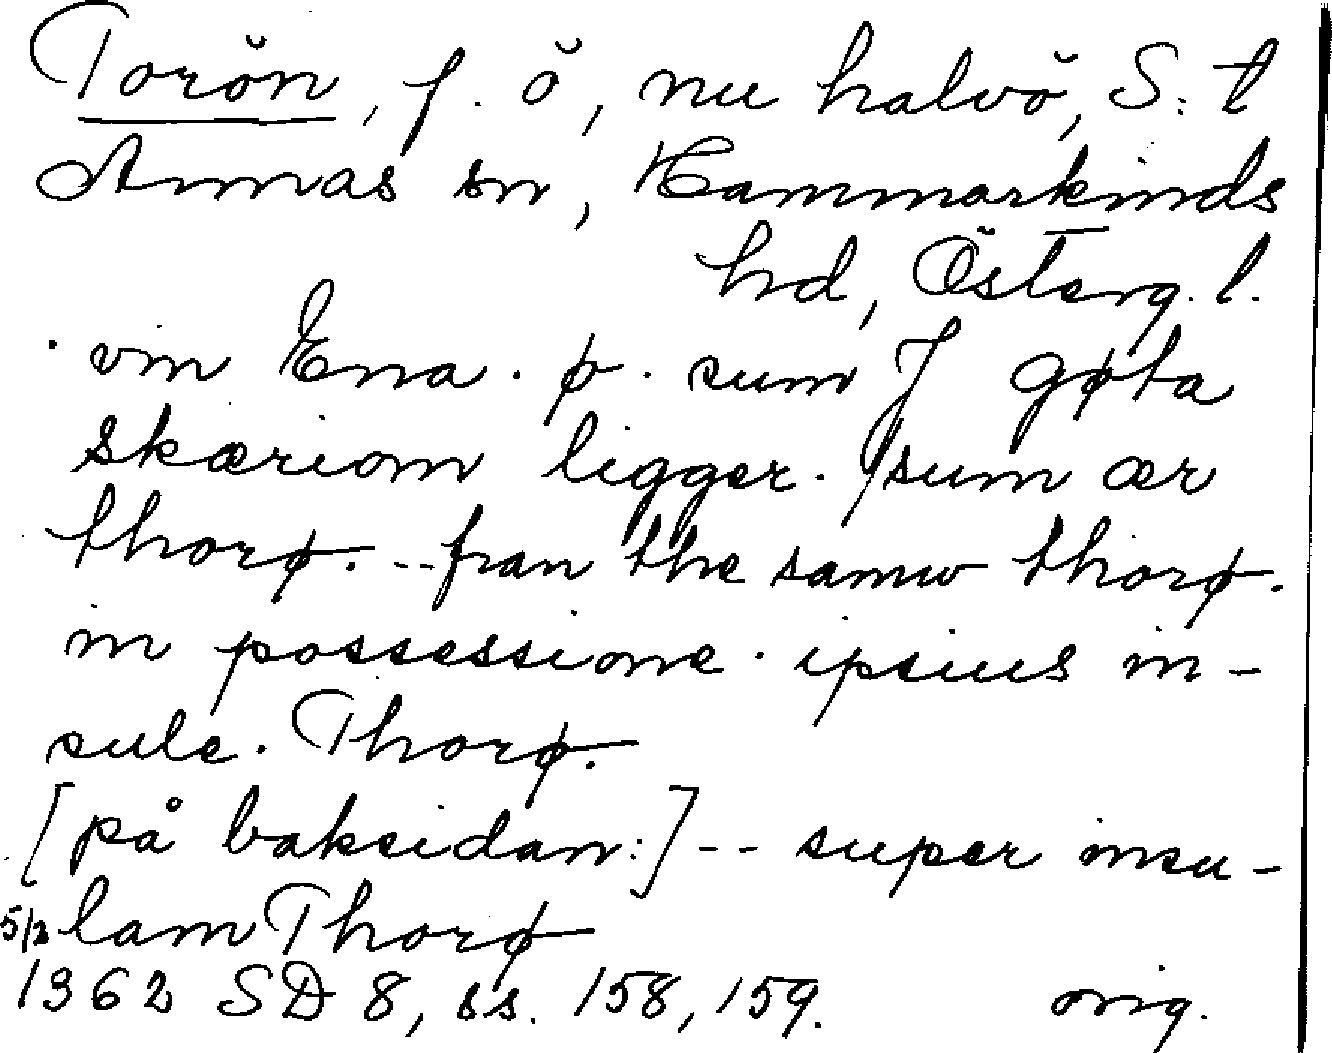 Torön, f. ö, nu halvö, S:t
Annas sn, Hammarkinds
hd, Österg. l.
· vm Ena . ø . sum J gøta
skæriom ligger. sum ær
thorø. -- fran the samw thorø.
in possessione · ipsius in-
sule. Thorø.
[på baksidan:] -- super insu-
5/2 lam Thorø
1362 SD 8, ss. 158, 159. orig.